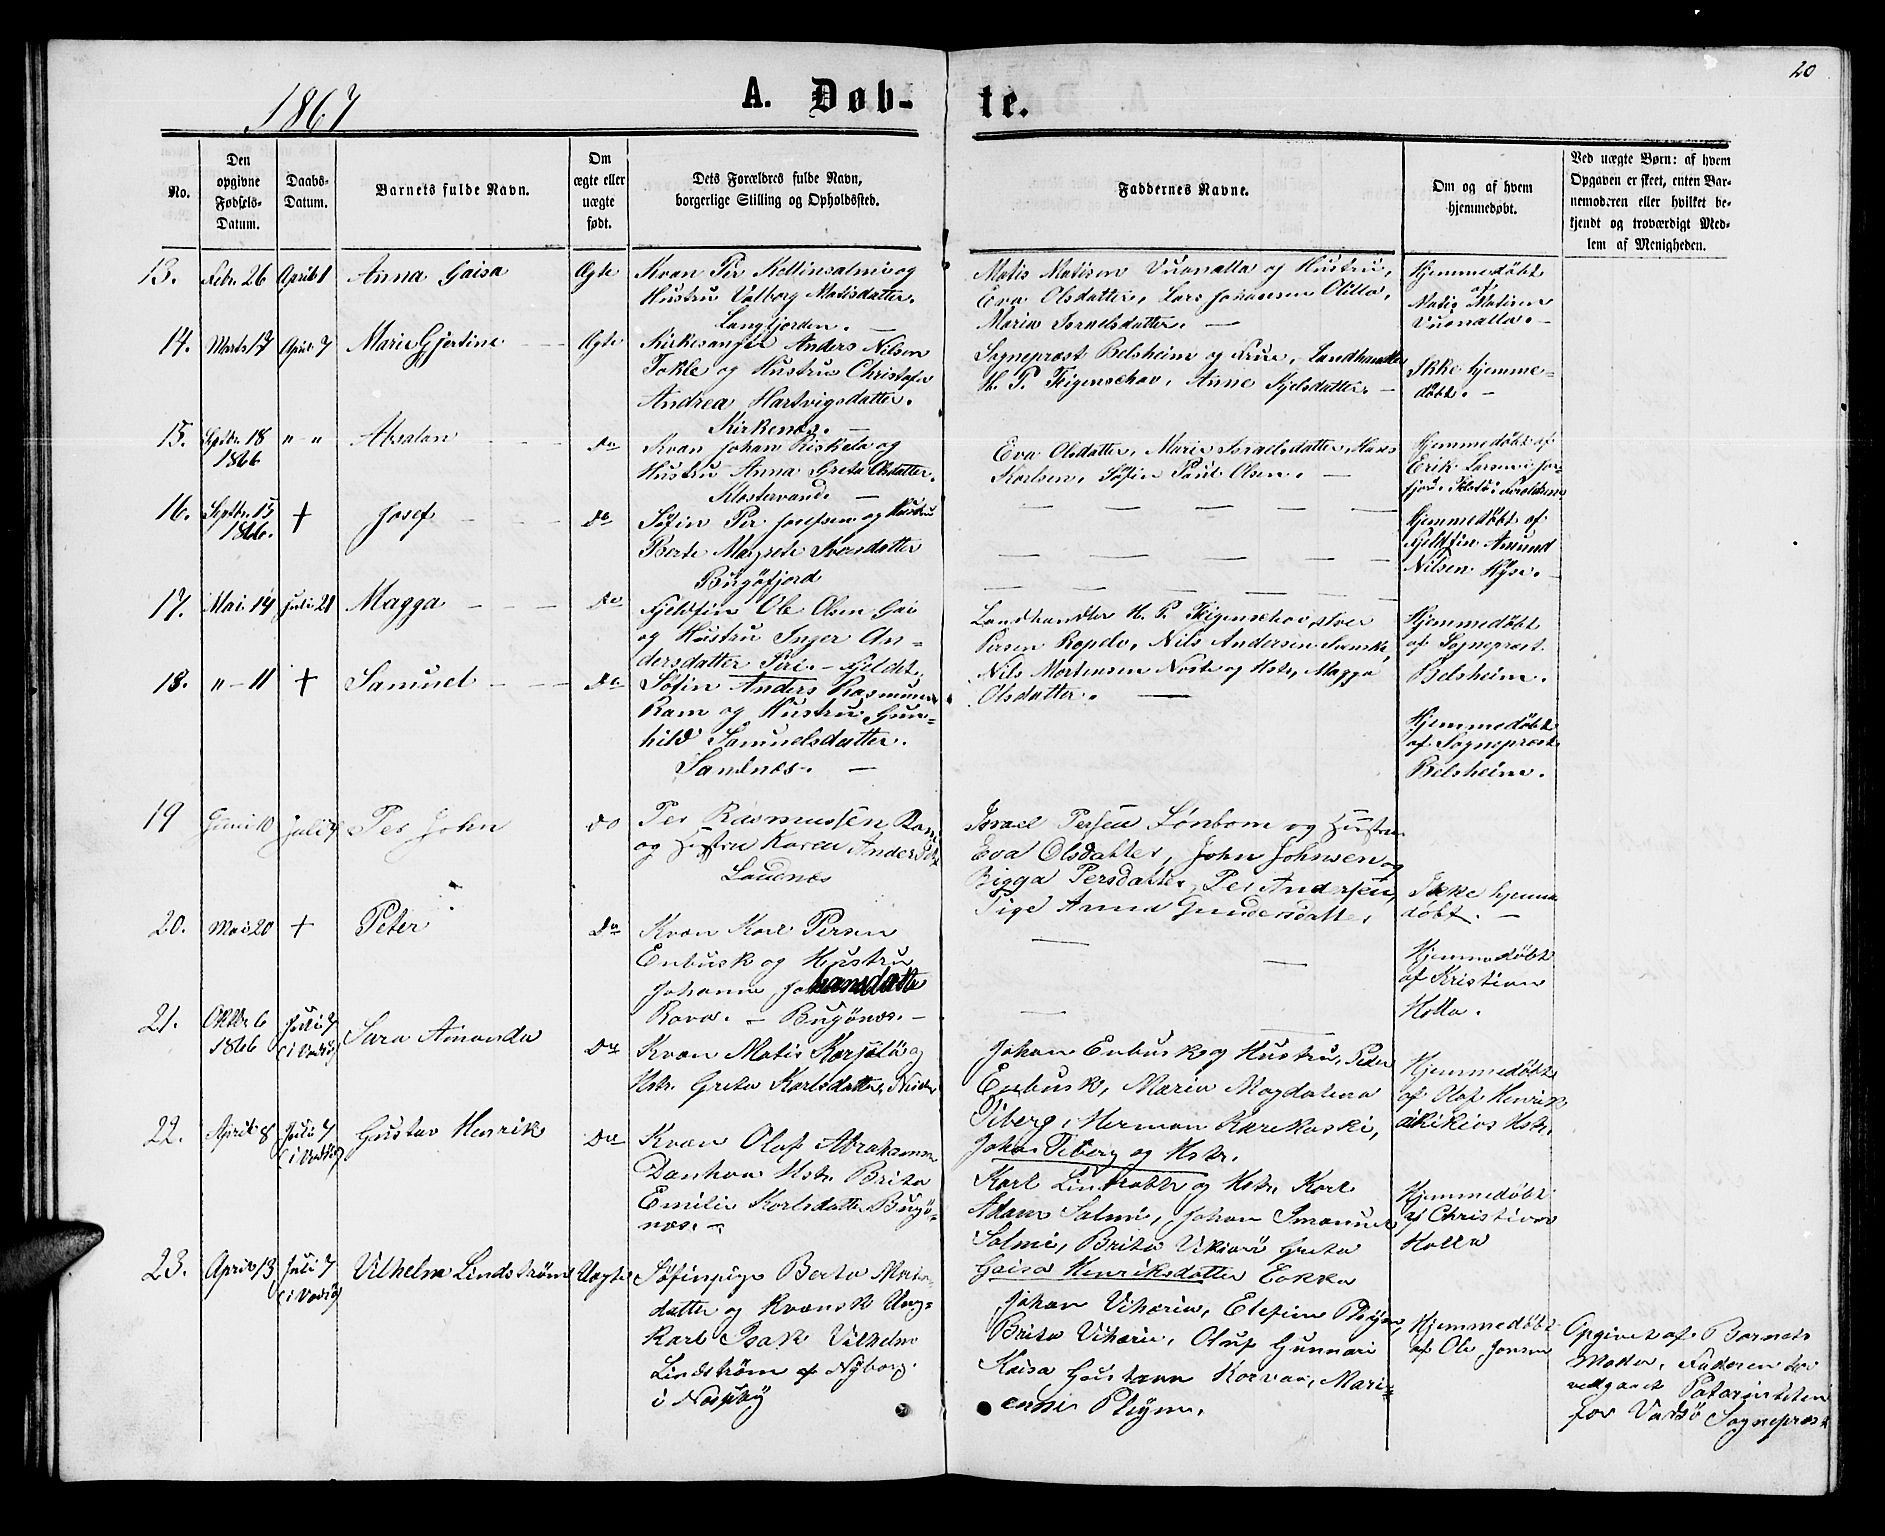 20
1867
A. Døb-
te.
No.
Den
opgivne
Fødsels-
Datum.
Daabs-
Datum.
Barnets fulde Navn.
Om
ægte eller
uægte
født.
Dets Forældres fulde Navn,
borgerlige Stilling og Opholdssted.
Faddernes Navne.
Om og af hvem
hjemmedøbt.
Ved uægte Børn: af hvem
Opgaven er skeet, enten Bar-
nemoderen eller hvilket be-
kjendt og troværdigt Med-
lem af Menigheden.
13.
Febr. 26
April 1
Anna Gaisa
Ægte
Kvæn Per Kettinsalmi og
Hustru Valborg Matisdatter.
Langfjorden. —
Matis Matisen Vuonalla og Hustru,
Eva Olsdatter, Lars Johansen Olilla,
Maria Israelsdatter. —
Hjemmedøbt
af
Matis Matisen
Vuonalla. -
14.
Marts 17
April 7
Marie Gjertine
Ægte
Kirkesanger Anders Nilsen
Tokle og Hustru Christofa
Andrea Hartvigsdatter.
Kirkenæs. —
Sognepræst Belsheim og Frue, Landhandler
H. P. Figenschou, Anne Kjelsdatter. —
Ikke hjemme-
døbt. -
15.
Septbr. 18
1866
„ - „
Absalon
Do
Kvæn Johan Riskela og
Hustru Anna Greta Olsdatter.
Klostervand. —
Eva Olsdatter, Maria Israelsdatter, Hans
Karlsen, Søfin Paul Olsen. —
Hjemmedøbt af
Erik Larsen i Jar-
16.
Septbr. 15
1866.
+
Josef
Do
Søfin Per Josefsen og Hustru
Berte Margrete Iversdatter
Bugøfjord
Hjemmedøbt af
Fjeldfin Amund
Nilsen Kyse. -
17.
Mai 14
Juli 21
Magga
Do
Fjeldfin Ole Olsen Gai
og Hustru Inger An-
dersdatter Piri. - Fjeldet.
Landhandler H. P. Figenschou, Iver
Persen Ropelv, Nils Andersen Svenske,
Nils Mortensen Noste og Hstr, Magga
Olsdatter. —
Hjemmedøbt
af Sognepræst
Belsheim.
18.
„ - 11
+
Samuel
Do
Søfin Anders Rasmussen
Ram og Hustru Gun-
hild Samuelsdatter.
Sandnæs. —
Hjemmedøbt
af Sognepræst
Belsheim.
19
Juni 10
Juli 7
Per John
do
Per Rasmussen Ram
og Hustru Karen Andersdtr
Sandnæs
Israel Persen Lønbom og Hustru
Eva Olsdatter, John Johnsen og
Bigga Persdatter, Per Andersen,
Pige Anna Gundersdatter.
Ikke hjemme
døbt. -
20.
Mai 20
+
Peter
Do
Kvæn Karl Persen
Enbusk og Hustru
Johanne Johansdatte
Rova. - Bugønæs. -
Hjemmedøbt
af Kristian
Holla.
21.
Oktbr. 6
1866
Juli 7
(i Vadsø)
Sara Amanda
Do
Kvæn Matis Karjola og
Hstr. Greta Karlsdatter,
Johan Enbusk og Hustru, Peder
Enbusk, Maria Magdalena
Tiberg, Herman Karikoski,
Johan Tiberg og Hstr.
Hjemmedøbt
af Olaf Henrik
22.
April 8
Juli 7
(i Vadsø)
Gustav Henrik
Do
Kvæn Olaf Abrahamsen
Dankoa Hstr. Brita
Emilie Karlsdatter Bugø-
næs. -
Karl og Hstr. Karl
Adam Salmi, Johan Imanuel
Salmi, Brita Greta
Gaisa Henriksdatter
Hjemmedøbt
af Christian
Holla
23.
April 13
Juli 7
(i Vadsø)
Vilhelm Lindstrøm
Uægte
Søfinpige Berta
datter og Kvænsk Ung-
karl Isak Vilhelm
Lindstrøm af Nyborg
i Næsseby
Johan Viharia,
Brita Viharia, Oluf Gunnari
Kaisa Gustava Korvas, Mari-
Hjemmedøbt
af Ole Jonsen
Opgivet af Barnets
Moder, Faderen har
vedgaaet Paterniteten
for Vadsø Sognepræst